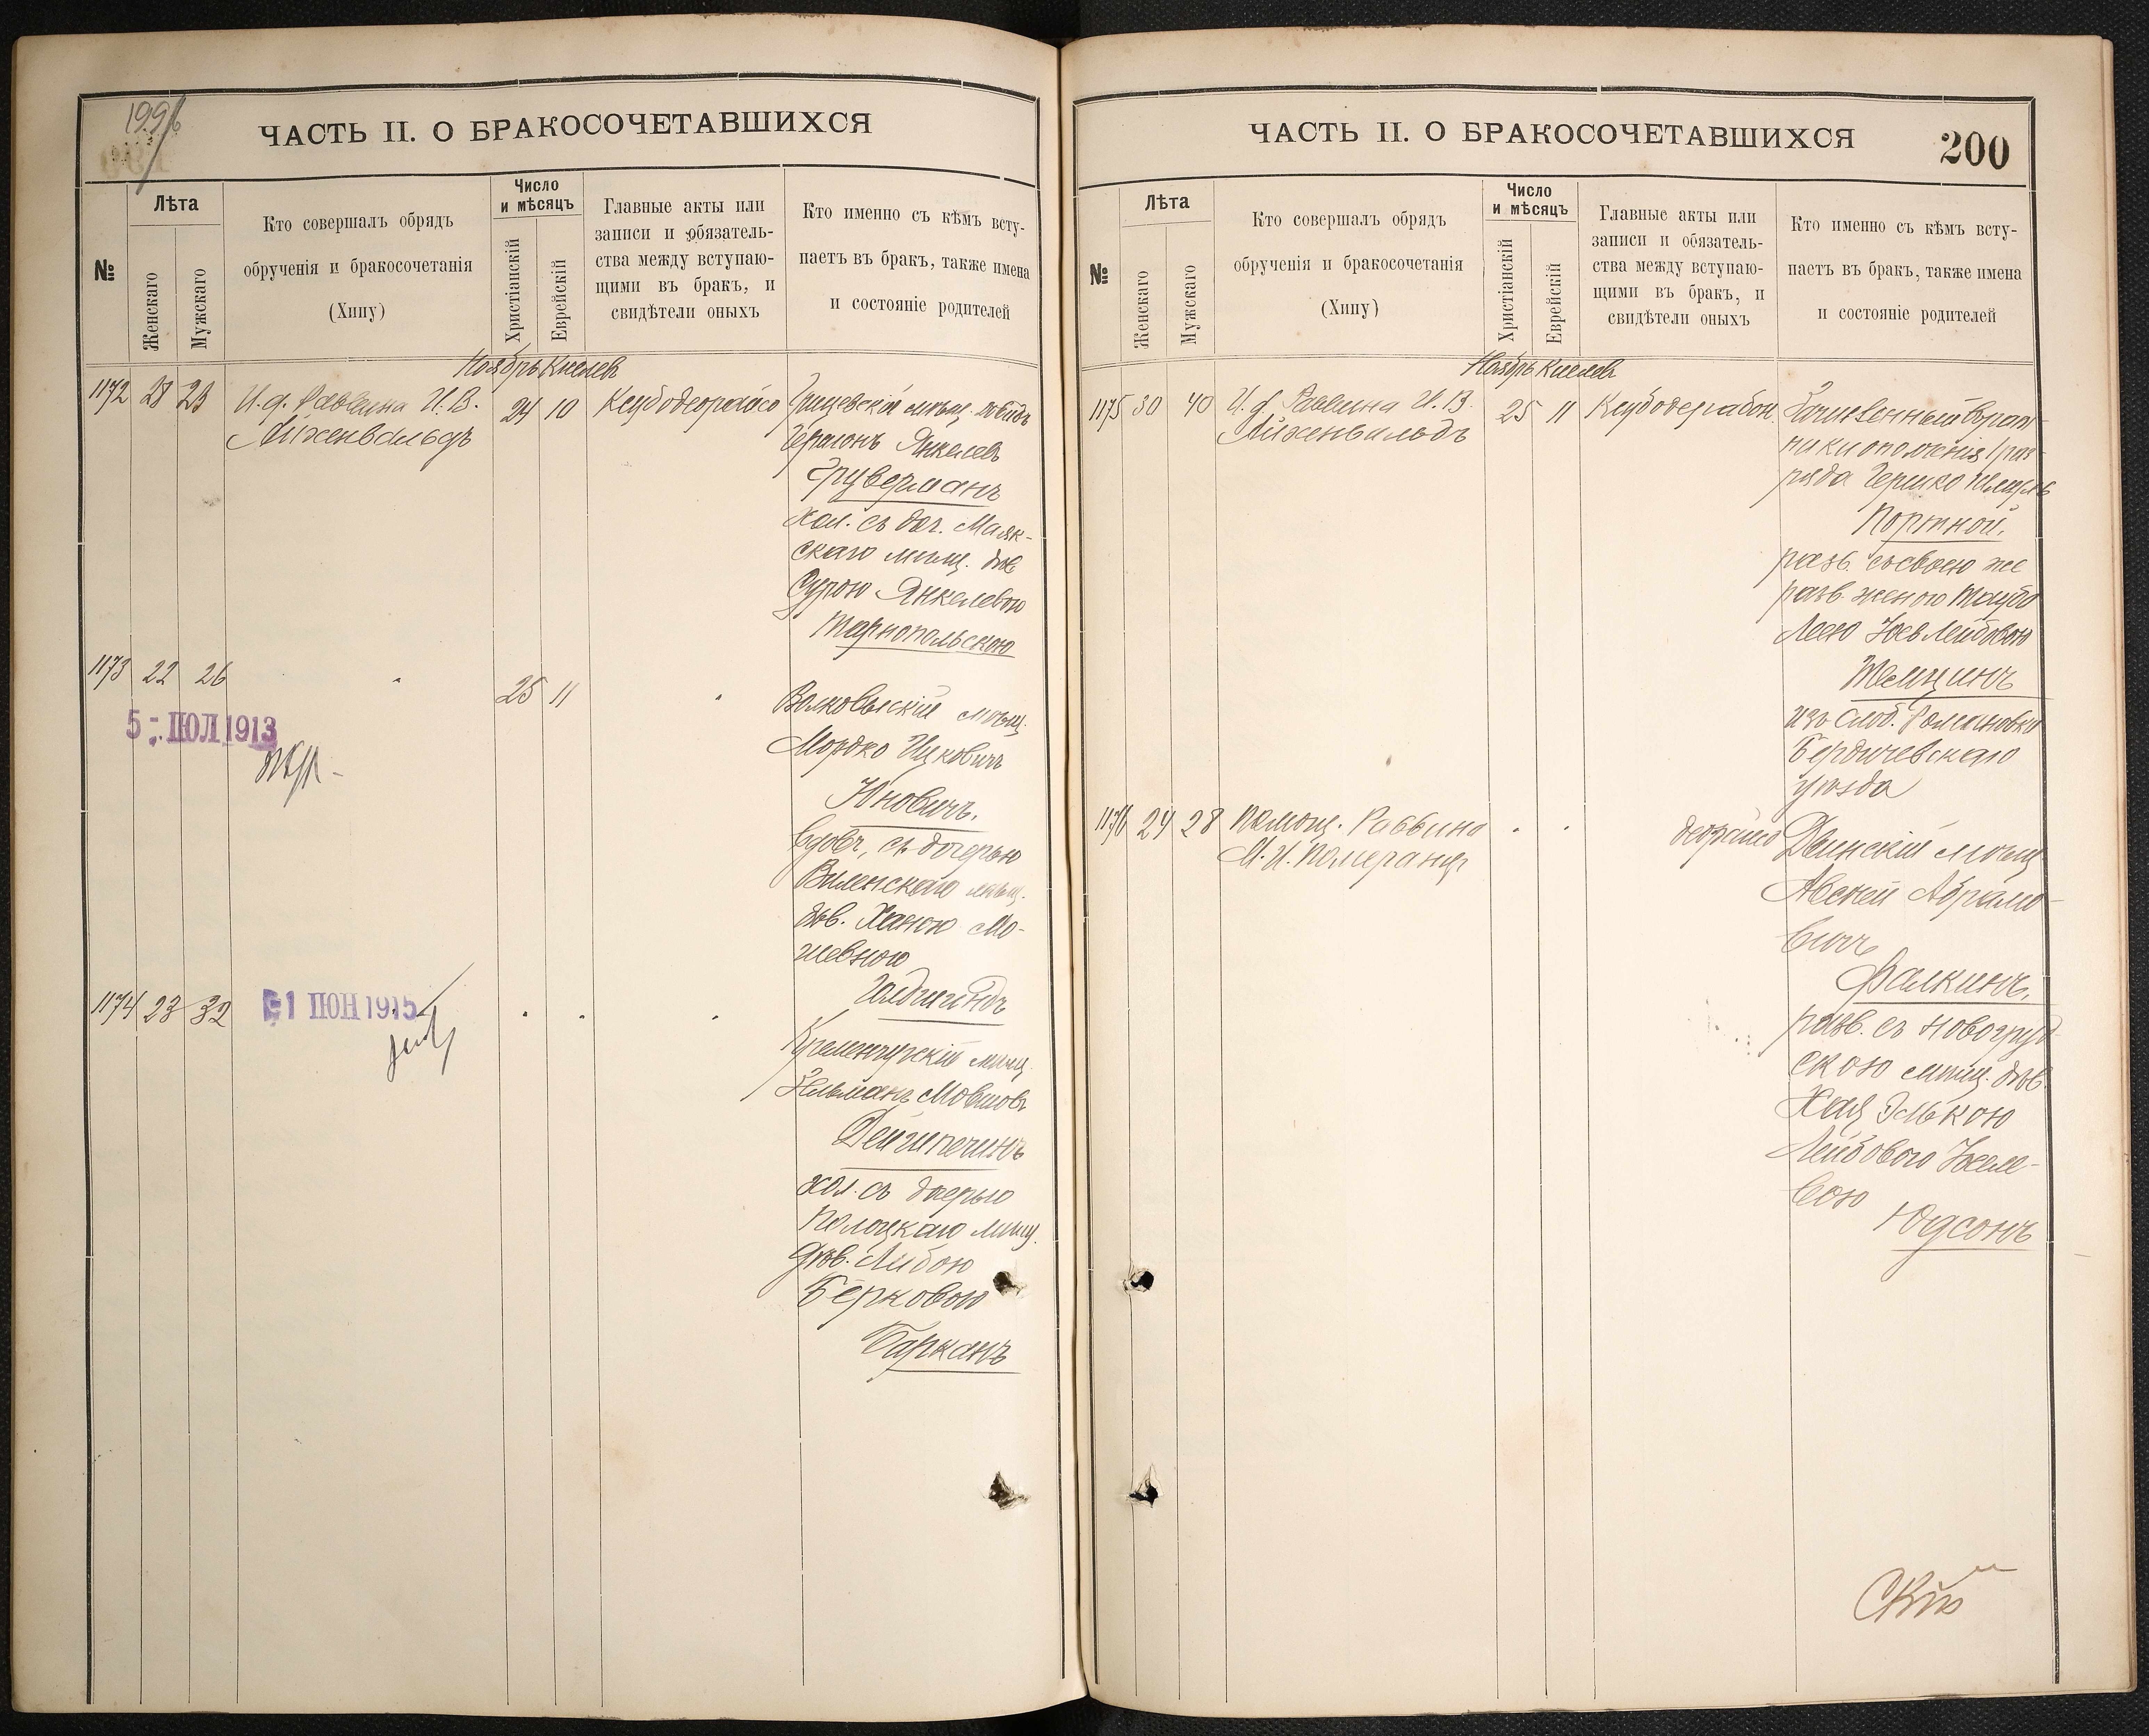 199
ЧАСТЬ II. О БРАКОСОЧЕТАВШИХСЯ
№
Лѣта
Женскаго
Мужскаго
Кто совершалъ обрядъ
обрученія и бракосочетанія
(Хипу)
Число
и мѣсяцъ
Христіанскій
Еврейскій
Главные акты или
записи и обязатель-
ства между вступаю-
щими въ бракъ, и
свидѣтели оныхъ
Кто именно съ кѣмъ всту-
паетъ въ бракъ, также имена
и состояніе родителей
Ноябрь Кислев
1172 28 23
И. д. Раввина И. В.
Айженвальдъ
24 10
мѣщ. Довидъ
Гершонъ Янкелев
Груверманъ
хол. съ доч. Маяк-
скаго мѣщ. дѣв
Сурою Янкелевою
Тарнопольскою
1173 22 26 " 25 11 "
5 - ІЮЛ 1913
Волковыскій мѣщ.
Мордко Ицковичъ
Юновичъ.
вдовч, съ дочерью
Виленскаго мѣщ.
дѣв. Ханою Мо-
шевною
1174 23 32 " " "
1 ІЮН 1915
Кременчугскій мѣщ.
Зельманъ Мовшовъ
хол. съ дочерью
Полоцкаго мѣщ.
дѣв. Либою
Берковою
Барканъ
ЧАСТЬ II. О БРАКОСОЧЕТАВШИХСЯ
200
№
Лѣта
Женскаго
Мужскаго
Кто совершалъ обрядъ
обрученія и бракосочетанія
(Хипу)
Число
и мѣсяцъ
Христіанскій
Еврейскій
Главные акты или
записи и обязатель-
ства между вступаю-
щими въ бракъ, и
свидѣтели оныхъ
Кто именно съ кѣмъ всту-
паетъ въ бракъ, также имена
и состояніе родителей
Ноябрь Кислев
1175 30 40
И. д. Раввина И. В.
Айженвальдъ
25 11
ополченія I раз-
ряда Гершко
Портной.
разв. съ своею же
разв. женою Таубо
Леею Лейбовою
изъ слоб. Романовки
Бердичевскаго
уѣзда
1176 24 28
Помощ. Раввина
М. И. Померанцъ
" "
Двинскій мѣщ.
Евсей Абрамо-
вичъ
Фалкинъ,
разв. съ Новогруд-
скою мѣщ. дѣв.
Хая Элькою
Юдсонъ